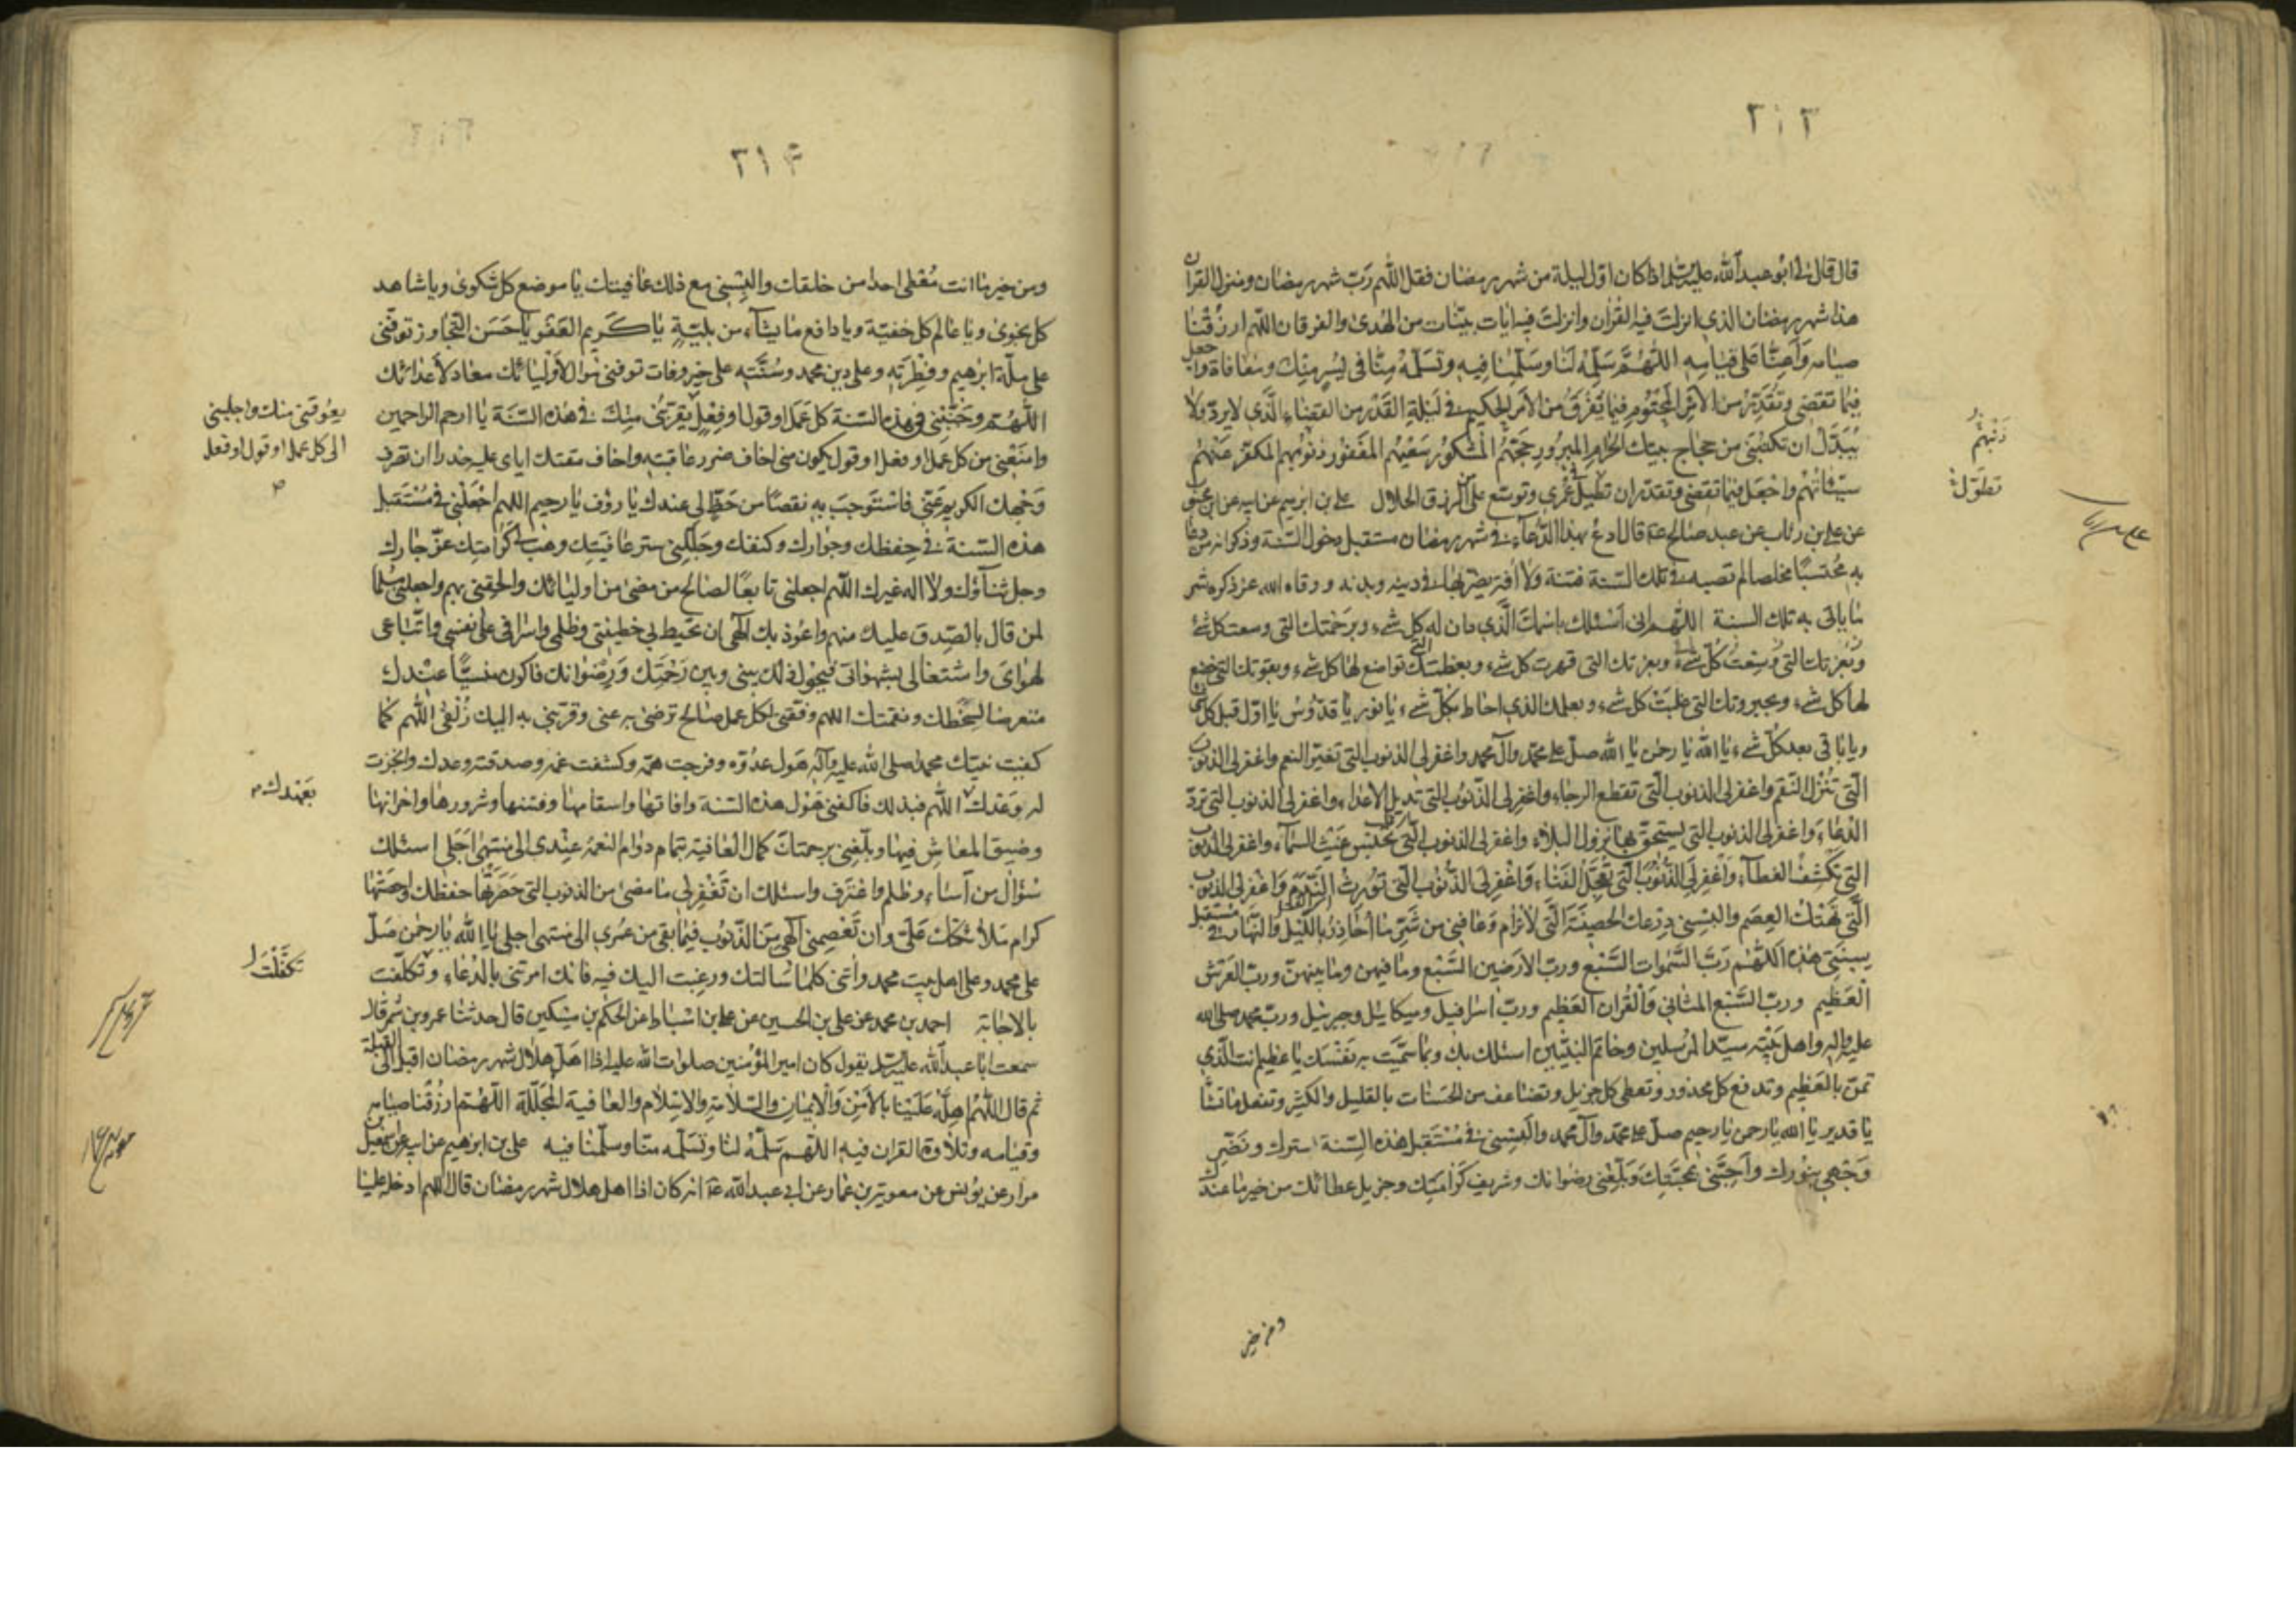 ٣١٣
قال قال لي ابو عبد الله عليه السلم اذا كان اول ليلة من شهر رمضان فقل اللهم رب شهر رمضان ومنزل القران
هذا شهر رمضان الذي انزلت فيه القران وانزلت فيه ايات بينات من الهدى والفرقان اللهم ارزقنا
صيامه واعنا على قيامه اللهم سلمه لنا وسلمنا فيه وتسلمه منا في يسر منك ومعافاة واجعل
فيما تقضي وتقدر من الامر المحتوم فيما يفرق من الامر الحكيم في ليلة القدر من القضاء الذي لا يرد ولا
يبدل ان تكتبني من حجاج بيتك الحرام المبرور حجتهم المشكور سعيهم المغفور ذنوبهم المكفر عنهم
سيئاتهم واجعل فيما تقضي وتقدر ان تطيل عمري وتوسع علي من الرزق الحلال علي بن ابرهيم عن ابيه عن ابن محبوب
عن علي بن رئاب عن عبد صالح ع قال ادع بهذا الدعاء في شهر رمضان مستقبل دخول السنة وذكر انه من دعا
به محتسبا مخلصا لم تصبه في تلك السنة فتنة ولا افة يضر بها في دينه وبدنه ووقاه الله عز ذكره شر
ما ياتي به تلك السنة اللهم اني اسئلك باسمك الذي دان له كل شيء وبرحمتك التي وسعت كل شيء
وبعزتك التي وسعت كل شيء وبعزتك التي قهرت كل شيء وبعظمتك التي تواضع لها كل شيء وبقوتك التي خضع
لها كل شيء وبجبروتك التي غلبت كل شيء وبعلمك الذي احاط بكل شيء يا نور يا قدوس يا اول قبل كل شيء
ويا باقي بعد كل شيء يا الله يا رحمن يا الله صل على محمد وآل محمد واغفر لي الذنوب التي تغير النعم واغفر لي الذنوب
التي تنزل النقم واغفر لي الذنوب التي تقطع الرجاء واغفر لي الذنوب التي تديل الاعداء واغفر لي الذنوب التي ترد
الدعاء واغفر لي الذنوب التي يستحق بها نزول البلاء واغفر لي الذنوب التي تحبس غيث السماء واغفر لي الذنوب
التي تكشف الغطاء واغفر لي الذنوب التي تعجل الفناء واغفر لي الذنوب التي تورث الندم واغفر لي الذنوب
التي تهتك العصم والبسني درعك الحصينة التي لا ترام وعافني من شر ما احاذر بالليل والنهار في مستقبل
سنتي هذه اللهم رب السموات السبع ورب الارضين السبع وما فيهن وما بينهن ورب العرش
العظيم ورب السبع المثاني والقران العظيم ورب اسرافيل وميكائيل وجبرئيل ورب محمد صلى الله
عليه واله واهل بيته سيد المرسلين وخاتم النبيين اسئلك بك وبما سميت به نفسك يا عظيم انت الذي
تمن بالعظيم وتدفع كل محذور وتعطي كل جزيل وتضاعف من الحسنات بالقليل والكثير وتفعل ما تشا
يا قدير يا الله يا رحمن يا رحيم صل على محمد وآل محمد والبسني في مستقبل هذه السنة استرك ونضر
وجهي بنورك واحبني بمحبتك وبلغني رضوانك وشريف كرامتك وجزيل عطائك من خير ما عندك
ذنبهم
تطول
ومن خير
٣١۴
ومن خير ما انت معطي احدا من خلقك والبسني مع ذلك عافيتك يا موضع كل شكوى ويا شاهد
كل نجوى ويا عالم كل خفية ويا دافع ما يشاء من بلية يا كريم العفو يا حسن التجاوز توفني
على ملة ابرهيم وفطرته وعلى دين محمد وسنته على خير وفات توفني مواليا لاوليائك معاديا لاعدائك
اللهم وجنبني في هذه السنة كل عمل او قول او فعل يقربني منك في هذه السنة يا ارحم الراحمين
وامنعني من كل عمل او فعل او قول يكون مني اخاف ضرر عاقبته واخاف مقتك اياي عليه حذرا ان تصرف
وجهك الكريم عني فاستوجب به نقصا من حظ لي عندك يا رؤف يا رحيم اللهم اجعلني في مستقبل
هذه السنة في حفظك وجوارك وكنفك وجللني ستر عافيتك وهب لي كرامتك عز جارك
وجل ثناؤك ولا اله غيرك اللهم اجعلني تابعا لصالح من مضى من اوليائك والحقني بهم واجعلني مسلما
لمن قال بالصدق عليك منهم واعوذ بك الهي ان تحيط بي خطيئتي وظلمي واسرافي على نفسي واتباعي
لهواي واشتغالي بشهواتي فيحول ذلك بيني وبين رحمتك ورضوانك فاكون منسيا عندك
متعرضا لسخطك ونقمتك اللهم وفقني لكل عمل صالح ترضى به عني وقربني به اليك زلفى اللهم كما
كفيت نبيك محمدا صلى الله عليه وآله هول عدوه وفرجت همه وكشفت غمه وصدقته وعدك وانجزت
له وعدك اللهم فبذلك فاكفني هول هذه السنة وافاتها واسقامها وفتنها وشرورها واحزانها
وضيق المعاش فيها وبلغني برحمتك كمال العافية بتمام دوام النعمة عندي الى منتهى اجلي اسئلك
سؤال من اساء وظلم واعترف واسئلك ان تغفر لي ما مضى من الذنوب التي حصرتها حفظتك واحصتها
كرام ملائكتك علي وان تعصمني الهي من الذنوب فيما بقي من عمري الى منتهى اجلي يا الله يا رحمن صل
على محمد وعلى اهل بيت محمد واتني كلما سالتك ورغبت اليك فيه فانك امرتني بالدعاء وتكلفت
بالاجابة احمد بن محمد عن علي بن الحسين عن علي بن اسباط عن الحكم بن مسكين قال حدثنا عمرو بن شمر قال
سمعت ابا عبد الله عليه السلم يقول كان امير المؤمنين صلوات الله عليه اذا اهل هلال شهر رمضان اقبل الى القبلة
ثم قال اللهم اهله علينا بالامن والايمان والسلامة والاسلام والعافية المجللة اللهم ارزقنا صيامه
وقيامه وتلاوة القران فيه اللهم سلمه لنا وتسلمه منا وسلمنا فيه علي بن ابرهيم عن ابيه عن اسمعيل بن
مرار عن يونس عن معوية بن عمار عن ابي عبد الله ع انه كان اذا اهل هلال شهر رمضان قال اللهم ادخله علينا
منك واجلبني
الى كل عمل او قول او فعل
بعهدك
تكفلت